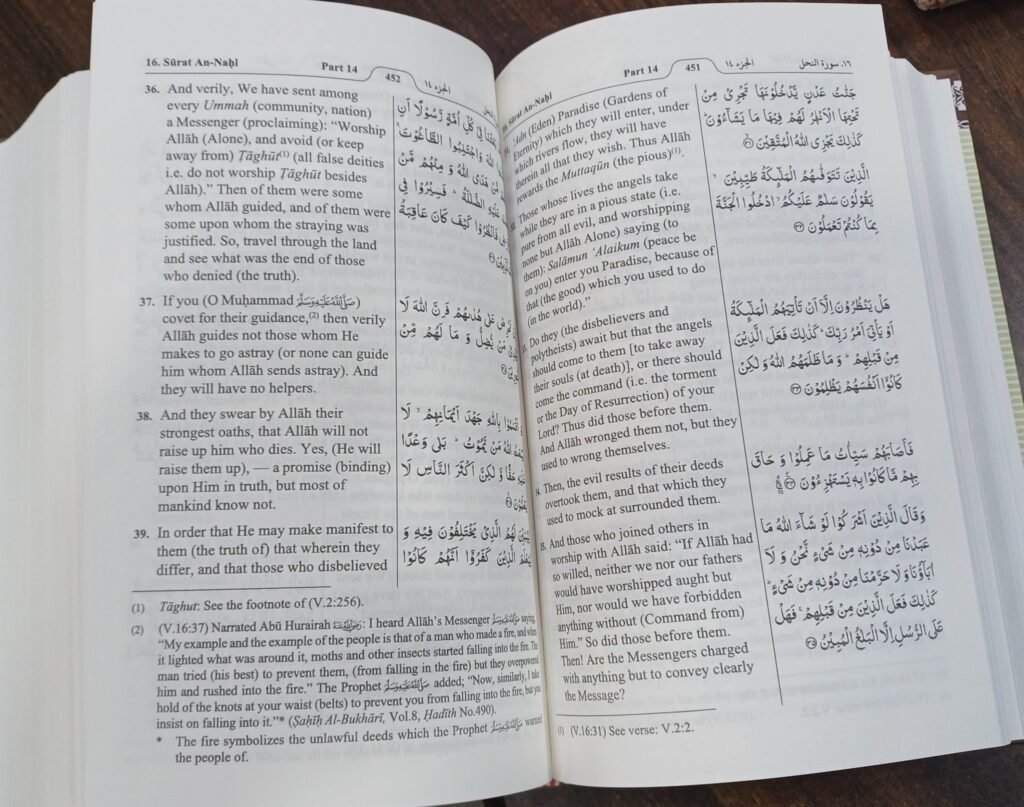 16. Sûrat An-Naḥl Part 14 451 الجزء ١٤ ١٦. سورة النحل
'Adn (Eden) Paradise (Gardens of
Eternity) which they will enter, under
which rivers flow, they will have
therein all that they wish. Thus Allâh
rewards the Muttaqûn (the pious)(1).
Those whose lives the angels take
while they are in a pious state (i.e.
pure from all evil, and worshipping
none but Allâh Alone) saying (to
them): Salâmun 'Alaikum (peace be
on you) enter you Paradise, because of
that (the good) which you used to do
(in the world)."
Do they (the disbelievers and
polytheists) await but that the angels
should come to them [to take away
their souls (at death)], or there should
come the command (i.e. the torment
or the Day of Resurrection) of your
Lord? Thus did those before them.
And Allâh wronged them not, but they
used to wrong themselves.
Then, the evil results of their deeds
overtook them, and that which they
used to mock at surrounded them.
And those who joined others in
worship with Allâh said: "If Allâh had
so willed, neither we nor our fathers
would have worshipped aught but
Him, nor would we have forbidden
anything without (Command from)
Him." So did those before them.
Then! Are the Messengers charged
with anything but to convey clearly
the Message?
جَنّٰتُ عَدْنٍ يَّدْخُلُوْنَهَا تَجْرِيْ مِنْ
تَحْتِهَا الْاَنْهٰرُ لَهُمْ فِيْهَا مَا يَشَآءُوْنَ ۗ
كَذٰلِكَ يَجْزِى اللّٰهُ الْمُتَّقِيْنَ ۝٣١
الَّذِيْنَ تَتَوَفّٰىهُمُ الْمَلٰٓئِكَةُ طَيِّبِيْنَ ۙ
يَقُوْلُوْنَ سَلٰمٌ عَلَيْكُمُ ۙ ادْخُلُوا الْجَنَّةَ
بِمَا كُنْتُمْ تَعْمَلُوْنَ ۝٣٢
هَلْ يَنْظُرُوْنَ اِلَّآ اَنْ تَاْتِيَهُمُ الْمَلٰٓئِكَةُ
اَوْ يَاْتِيَ اَمْرُ رَبِّكَ ۗ كَذٰلِكَ فَعَلَ الَّذِيْنَ
مِنْ قَبْلِهِمْ ۗ وَمَا ظَلَمَهُمُ اللّٰهُ وَلٰكِنْ
كَانُوْٓا اَنْفُسَهُمْ يَظْلِمُوْنَ ۝٣٣
فَاَصَابَهُمْ سَيِّاٰتُ مَا عَمِلُوْا وَحَاقَ
بِهِمْ مَّا كَانُوْا بِهٖ يَسْتَهْزِءُوْنَ ۝٣٤
وَقَالَ الَّذِيْنَ اَشْرَكُوْا لَوْ شَآءَ اللّٰهُ مَا
عَبَدْنَا مِنْ دُوْنِهٖ مِنْ شَيْءٍ نَّحْنُ وَلَآ
اٰبَآؤُنَا وَلَا حَرَّمْنَا مِنْ دُوْنِهٖ مِنْ شَيْءٍ ۗ
كَذٰلِكَ فَعَلَ الَّذِيْنَ مِنْ قَبْلِهِمْ ۚ فَهَلْ
عَلَى الرُّسُلِ اِلَّا الْبَلٰغُ الْمُبِيْنُ ۝٣٥
(1) (V.16:31) See verse: V.2:2.
16. Sûrat An-Naḥl Part 14 452 الجزء ١٤
36. And verily, We have sent among
every Ummah (community, nation)
a Messenger (proclaiming): "Worship
Allâh (Alone), and avoid (or keep
away from) Ṭâghût(1) (all false deities
i.e. do not worship Ṭâghût besides
Allâh)." Then of them were some
whom Allâh guided, and of them were
some upon whom the straying was
justified. So, travel through the land
and see what was the end of those
who denied (the truth).
37. If you (O Muḥammad صَلَّى اللّٰهُ عَلَيْهِ وَسَلَّمَ)
covet for their guidance,(2) then verily
Allâh guides not those whom He
makes to go astray (or none can guide
him whom Allâh sends astray). And
they will have no helpers.
38. And they swear by Allâh their
strongest oaths, that Allâh will not
raise up him who dies. Yes, (He will
raise them up), — a promise (binding)
upon Him in truth, but most of
mankind know not.
39. In order that He may make manifest to
them (the truth of) that wherein they
differ, and that those who disbelieved
فِيْ كُلِّ اُمَّةٍ رَّسُوْلًا اَنِ
اللّٰهَ وَاجْتَنِبُوا الطَّاغُوْتَ ۚ
مَّنْ هَدَى اللّٰهُ وَمِنْهُمْ مَّنْ
عَلَيْهِ الضَّلٰلَةُ ۗ فَسِيْرُوْا فِى
فَانْظُرُوْا كَيْفَ كَانَ عَاقِبَةُ
عَلٰى هُدٰىهُمْ فَاِنَّ اللّٰهَ لَا
مَنْ يُّضِلُّ وَمَا لَهُمْ مِّنْ
وَاَقْسَمُوْا بِاللّٰهِ جَهْدَ اَيْمَانِهِمْ ۙ لَا
اللّٰهُ مَنْ يَّمُوْتُ ۗ بَلٰى وَعْدًا
حَقًّا وَّلٰكِنَّ اَكْثَرَ النَّاسِ لَا
لَهُمُ الَّذِيْ يَخْتَلِفُوْنَ فِيْهِ وَ
الَّذِيْنَ كَفَرُوْٓا اَنَّهُمْ كَانُوْا
(1) Ṭâghut: See the footnote of (V.2:256).
(2) (V.16:37) Narrated Abû Hurairah رَضِيَ اللّٰهُ عَنْهُ: I heard Allâh's Messenger صَلَّى اللّٰهُ عَلَيْهِ وَسَلَّمَ saying,
"My example and the example of the people is that of a man who made a fire, and when
it lighted what was around it, moths and other insects started falling into the fire. The
man tried (his best) to prevent them, (from falling in the fire) but they overpowered
him and rushed into the fire." The Prophet صَلَّى اللّٰهُ عَلَيْهِ وَسَلَّمَ added; "Now, similarly, I take
hold of the knots at your waist (belts) to prevent you from falling into the fire, but you
insist on falling into it."* (Ṣaḥîḥ Al-Bukhârî, Vol.8, Ḥadîth No.490).
* The fire symbolizes the unlawful deeds which the Prophet صَلَّى اللّٰهُ عَلَيْهِ وَسَلَّمَ warned
the people of.